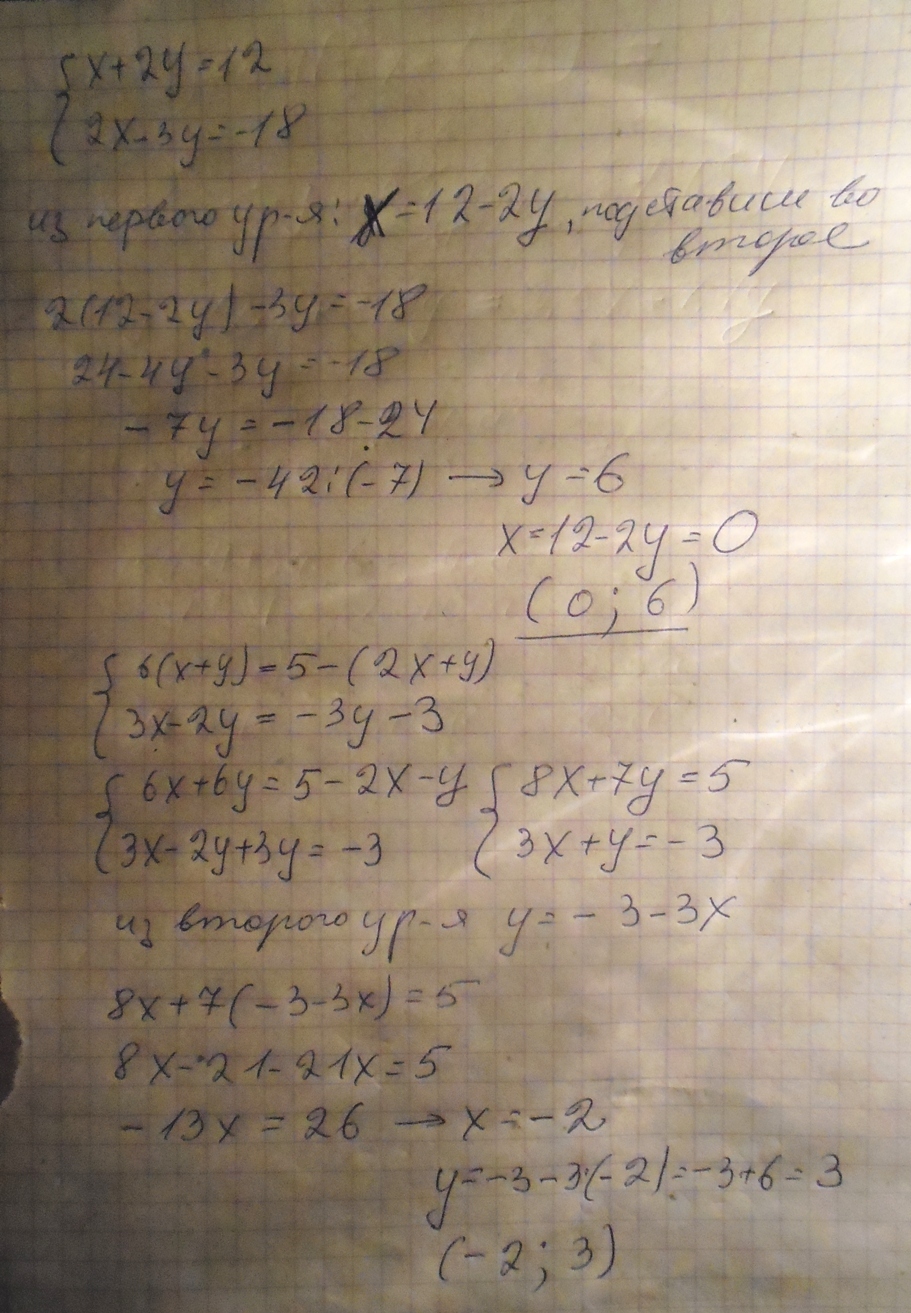 { x+2y=12
{ 2x-3y=-18
из первого ур-я: x=12-2y, подставим во
второе
2(12-2y)-3y=-18
24-4y-3y=-18
-7y=-18-24
y=-42:(-7) → y=6
x=12-2y=0
(0; 6)
{ 6(x+y)=5-(2x+y)
{ 3x-2y=-3y-3
{ 6x+6y=5-2x-y { 8x+7y=5
{ 3x-2y+3y=-3 { 3x+y=-3
из второго ур-я y=-3-3x
8x+7(-3-3x)=5
8x-21-21x=5
-13x=26 → x=-2
y=-3-3·(-2)=-3+6=3
(-2; 3)